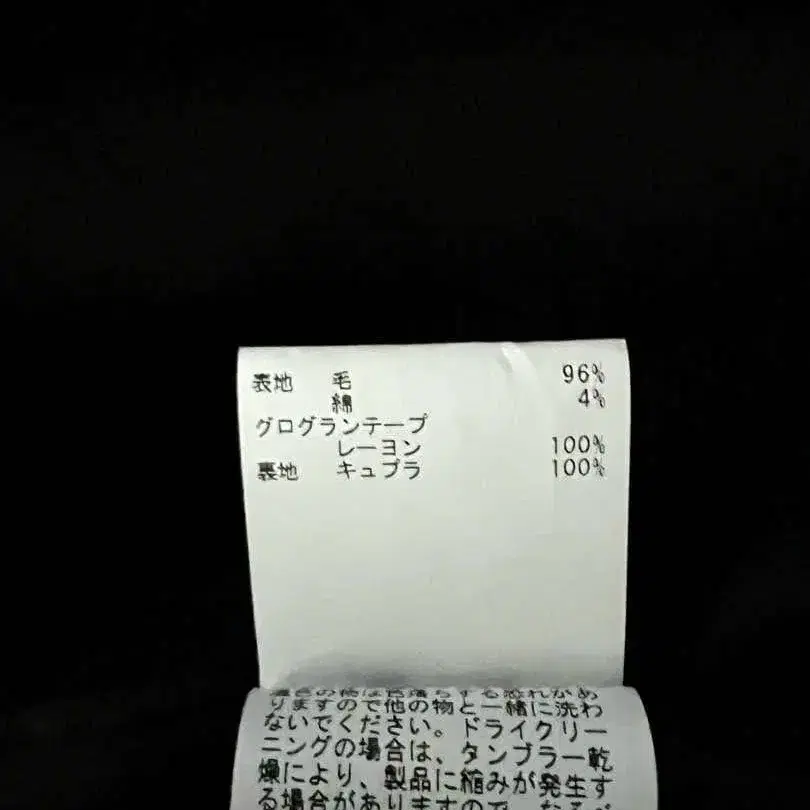 表地 毛 96%
綿 4%
グログランテープ
レーヨン 100%
裏地 キュプラ 100%
りますので他の物と一緒に洗わ
ないでください。ドライクリー
ニングの場合は、タンブラー乾
燥により、製品に縮みが発生す
る場合がありますので、なるべ